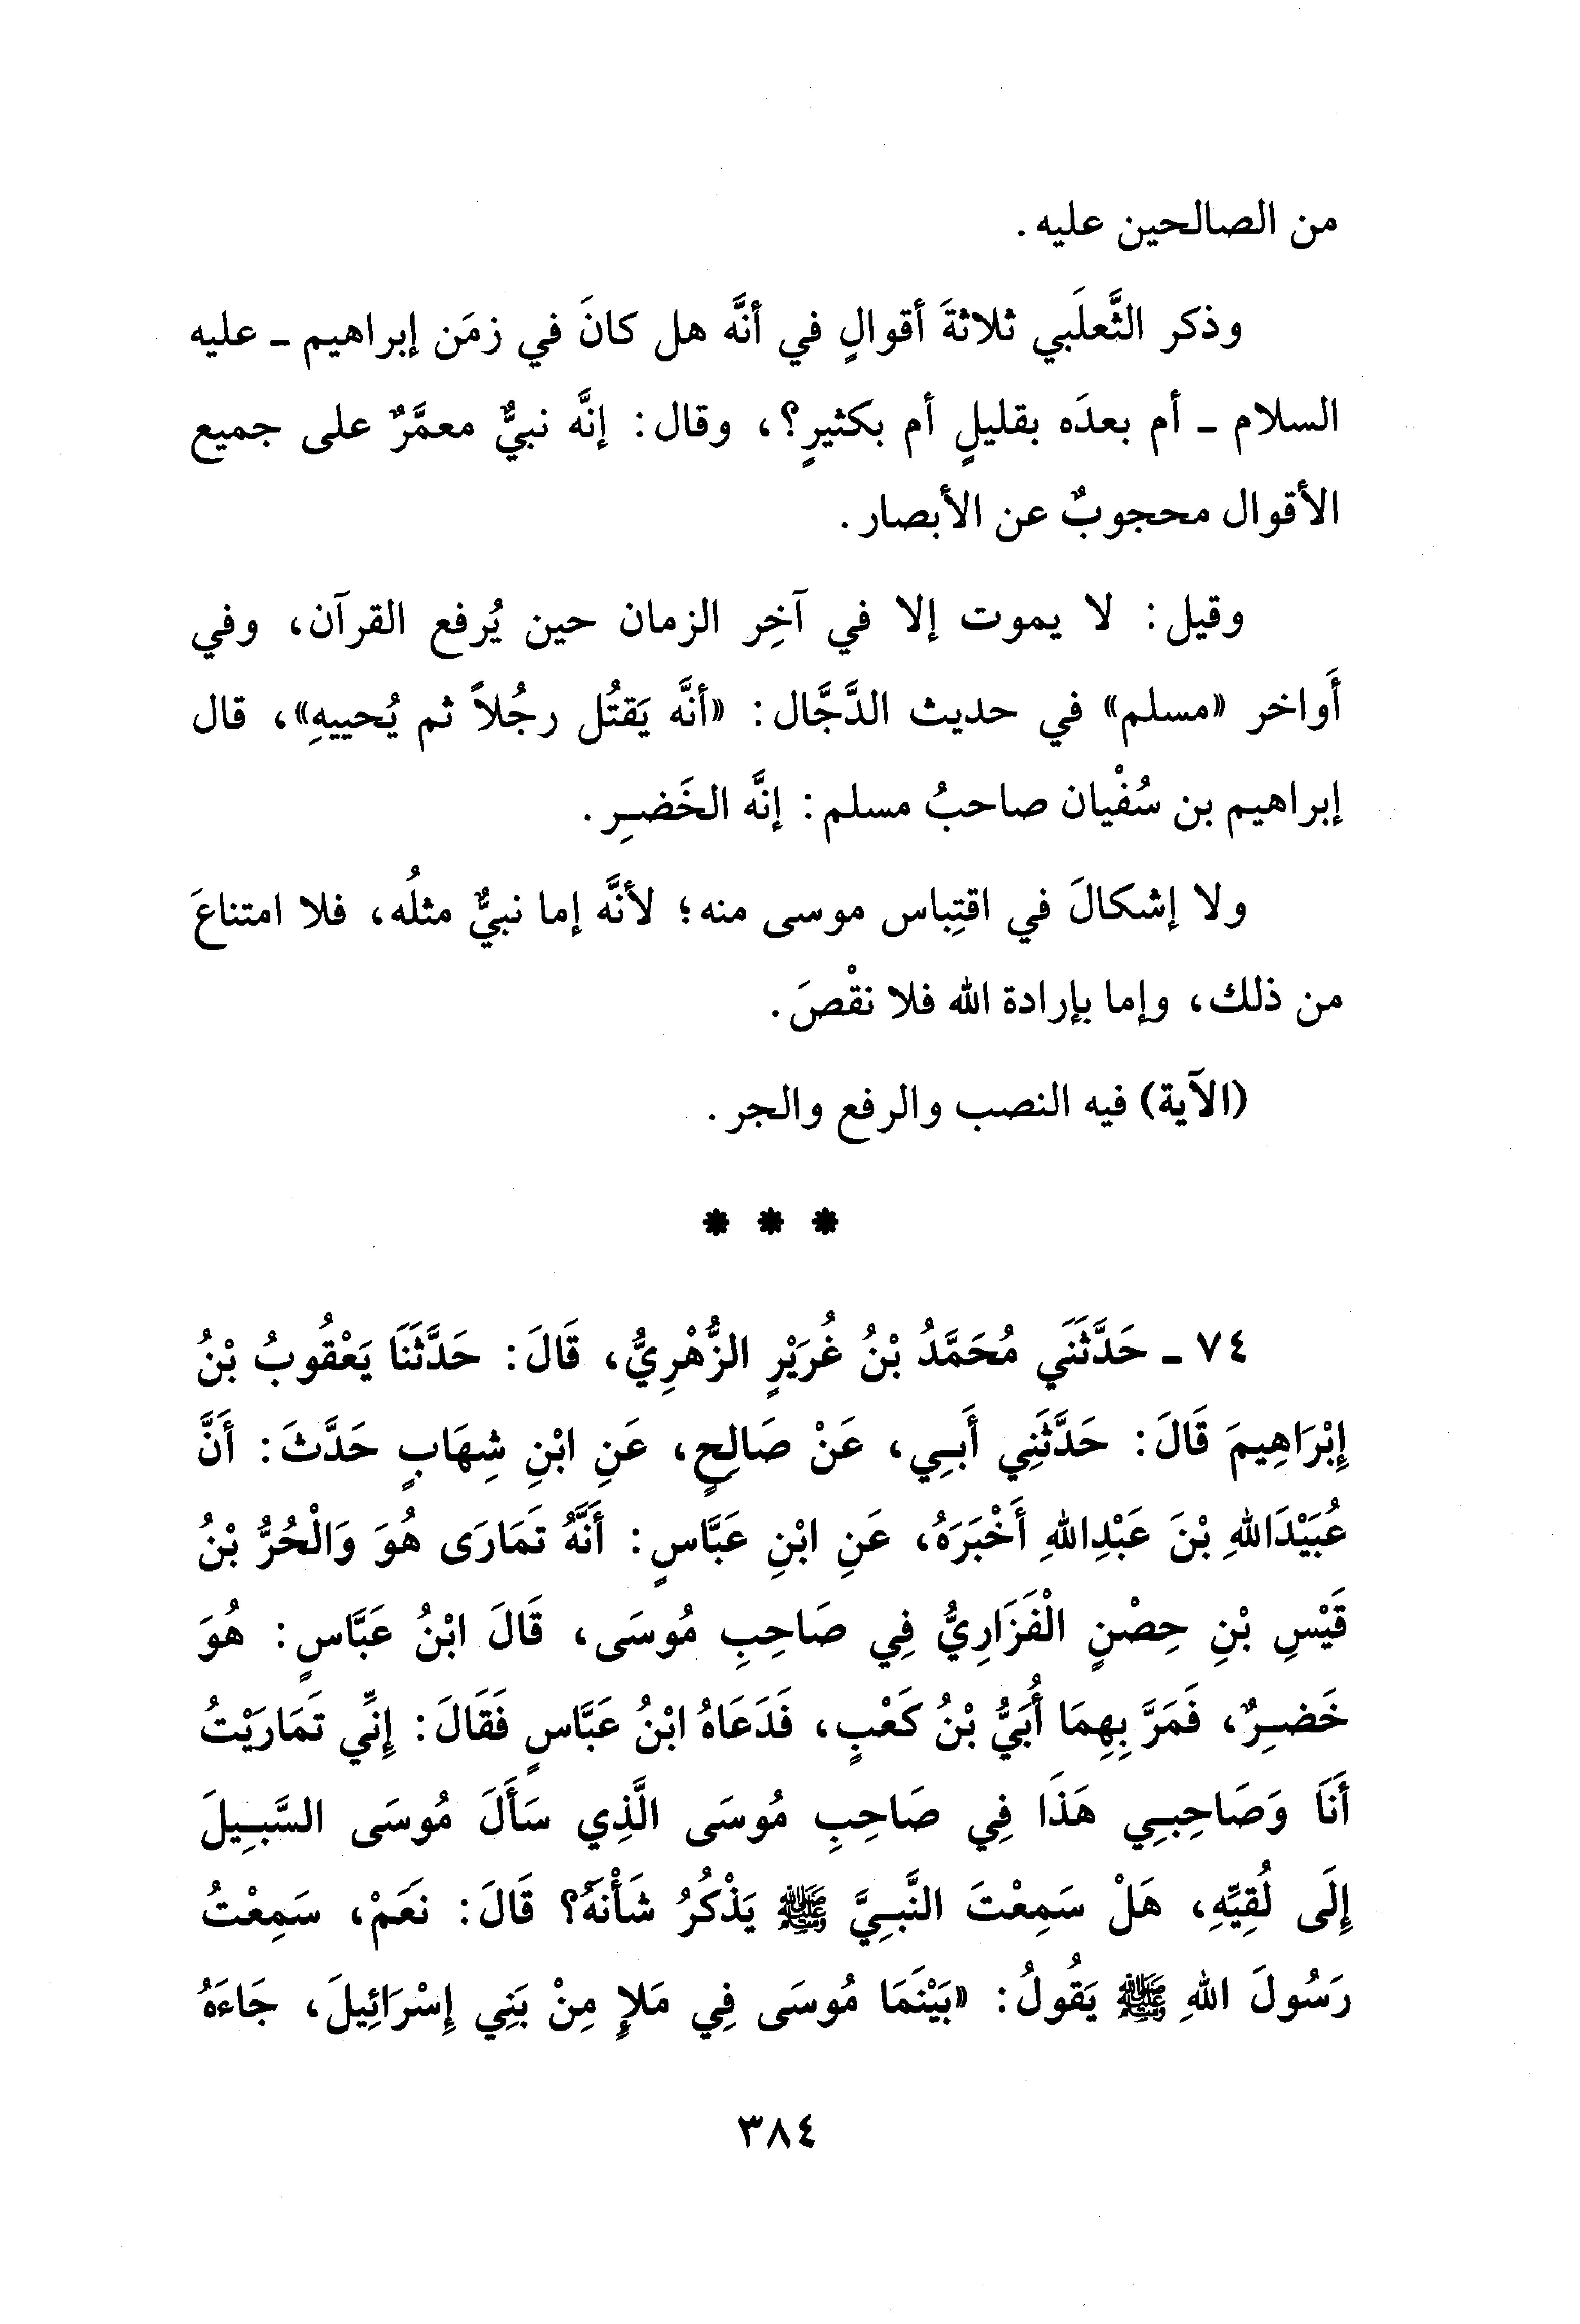 من الصالحين عليه.
وذكر الثَّعلَبي ثلاثةَ أقوالٍ في أنَّه هل كانَ في زمَن إبراهيم - عليه
السلام - أم بعدَه بقليلٍ أم بكثيرٍ؟، وقال: إنَّه نبيٌّ معمَّرٌ على جميع
الأقوال محجوبٌ عن الأبصار.
وقيل: لا يموت إلا في آخِر الزمان حين يُرفع القرآن، وفي
أَواخر «مسلم» في حديث الدَّجَّال: «أنَّه يَقتُل رجُلاً ثم يُحييهِ»، قال
إبراهيم بن سُفْيان صاحبُ مسلم: إنَّه الخَضِر.
ولا إشكالَ في اقتِباس موسى منه؛ لأنَّه إما نبيٌّ مثلُه، فلا امتناعَ
من ذلك، وإما بإرادة الله فلا نقْصَ.
(الآية) فيه النصب والرفع والجر.
* * *
٧٤ - حَدَّثَنَي مُحَمَّدُ بْنُ غُرَيْرٍ الزُّهْرِيُّ، قَالَ: حَدَّثَنَا يَعْقُوبُ بْنُ
إِبْرَاهِيمَ قَالَ: حَدَّثَنِي أَبِي، عَنْ صَالِحٍ، عَنِ ابْنِ شِهَابٍ حَدَّثَ: أَنَّ
عُبَيْدَاللهِ بْنَ عَبْدِاللهِ أَخْبَرَهُ، عَنِ ابْنِ عَبَّاسٍ: أَنَّهُ تَمَارَى هُوَ وَالْحُرُّ بْنُ
قَيْسِ بْنِ حِصْنٍ الْفَزَارِيُّ فِي صَاحِبِ مُوسَى، قَالَ ابْنُ عَبَّاسٍ: هُوَ
خَضِرٌ، فَمَرَّ بِهِمَا أُبَيُّ بْنُ كَعْبٍ، فَدَعَاهُ ابْنُ عَبَّاسٍ فَقَالَ: إِنِّي تَمَارَيْتُ
أَنَا وَصَاحِبِي هَذَا فِي صَاحِبِ مُوسَى الَّذِي سَأَلَ مُوسَى السَّبِيلَ
إِلَى لُقِيِّهِ، هَلْ سَمِعْتَ النَّبِيَّ ﷺ يَذْكُرُ شَأْنَهُ؟ قَالَ: نَعَمْ، سَمِعْتُ
رَسُولَ اللهِ ﷺ يَقُولُ: «بَيْنَمَا مُوسَى فِي مَلإٍ مِنْ بَنِي إِسْرَائِيلَ، جَاءَهُ
٣٨٤